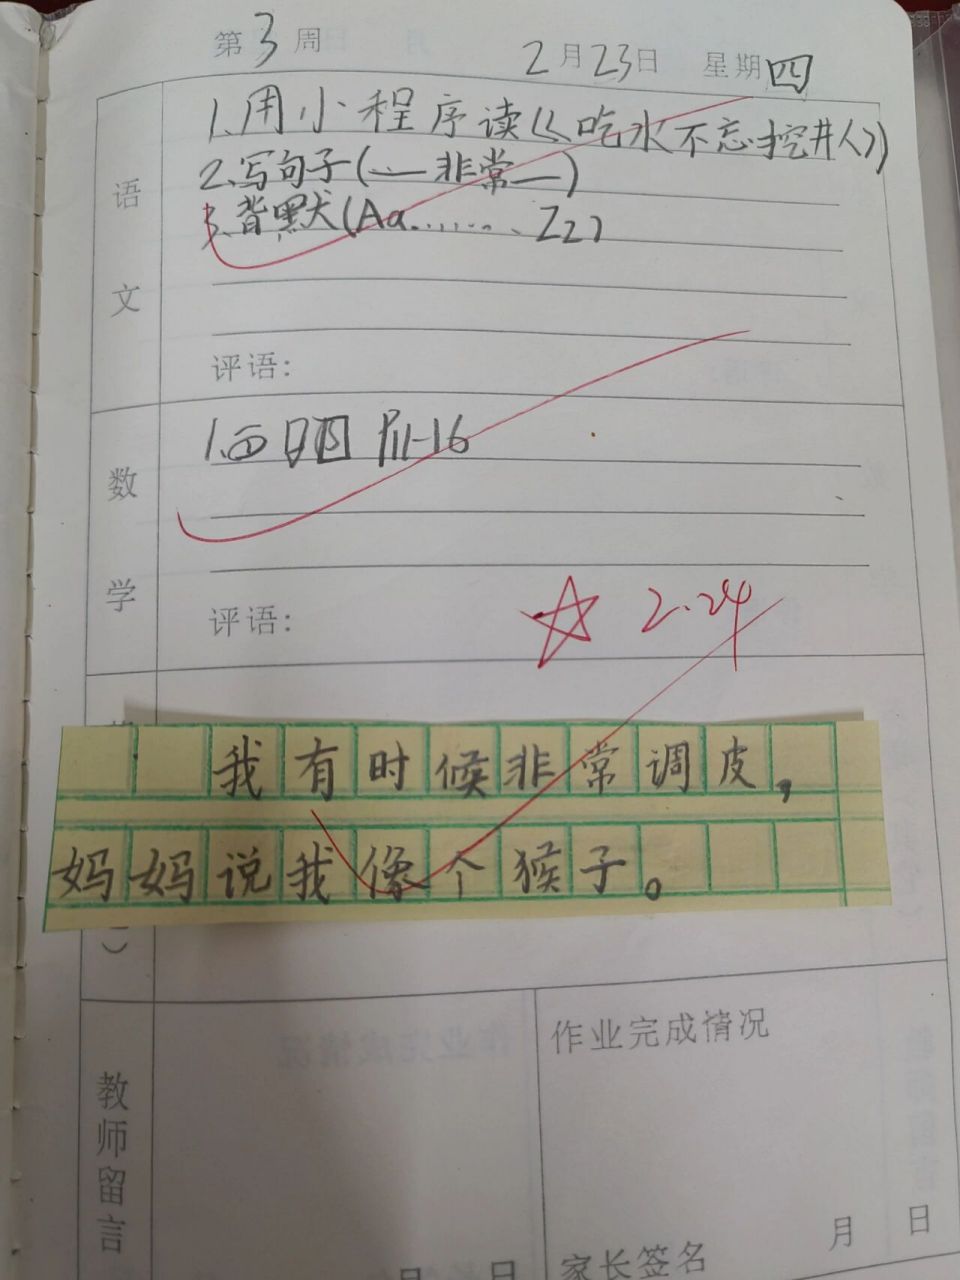 第3周 2月23日 星期四
语文
1.用小程序读《吃水不忘挖井人》
2.写句子(—非常—)
3.背默(Aa.......Zz)
评语:
数学
1. P11-16
评语:
☆ 2.24
我有时候非常调皮,
妈妈说我像个猴子。
)
教师留言
作业完成情况
月 日
作业完成情况
家长签名
月 日